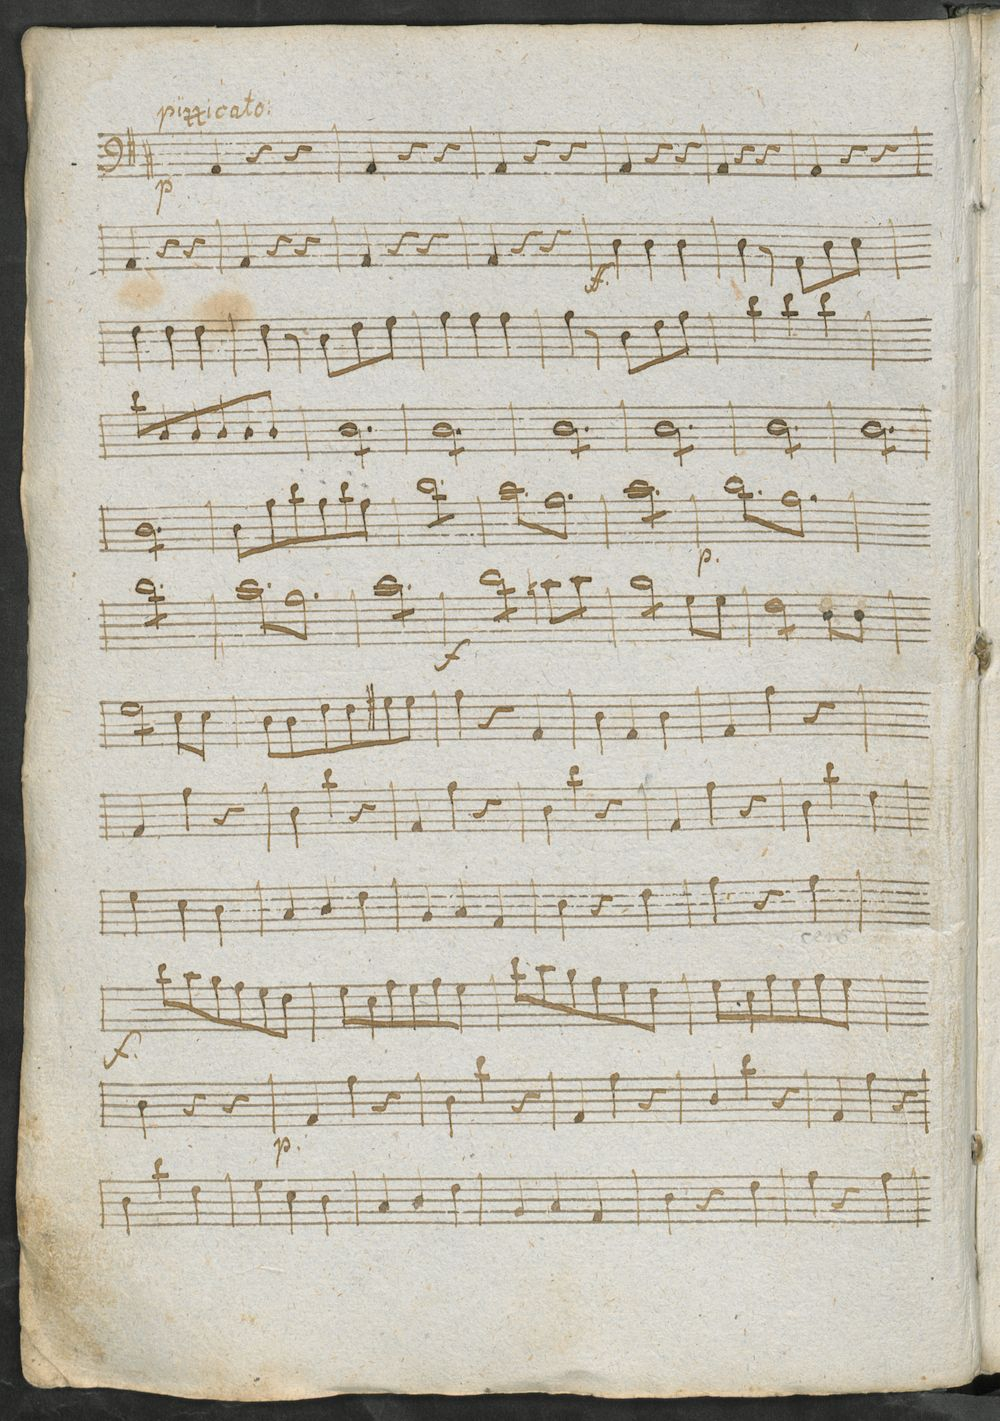 pizzicato:
p
f.
p.
f
f.
p.